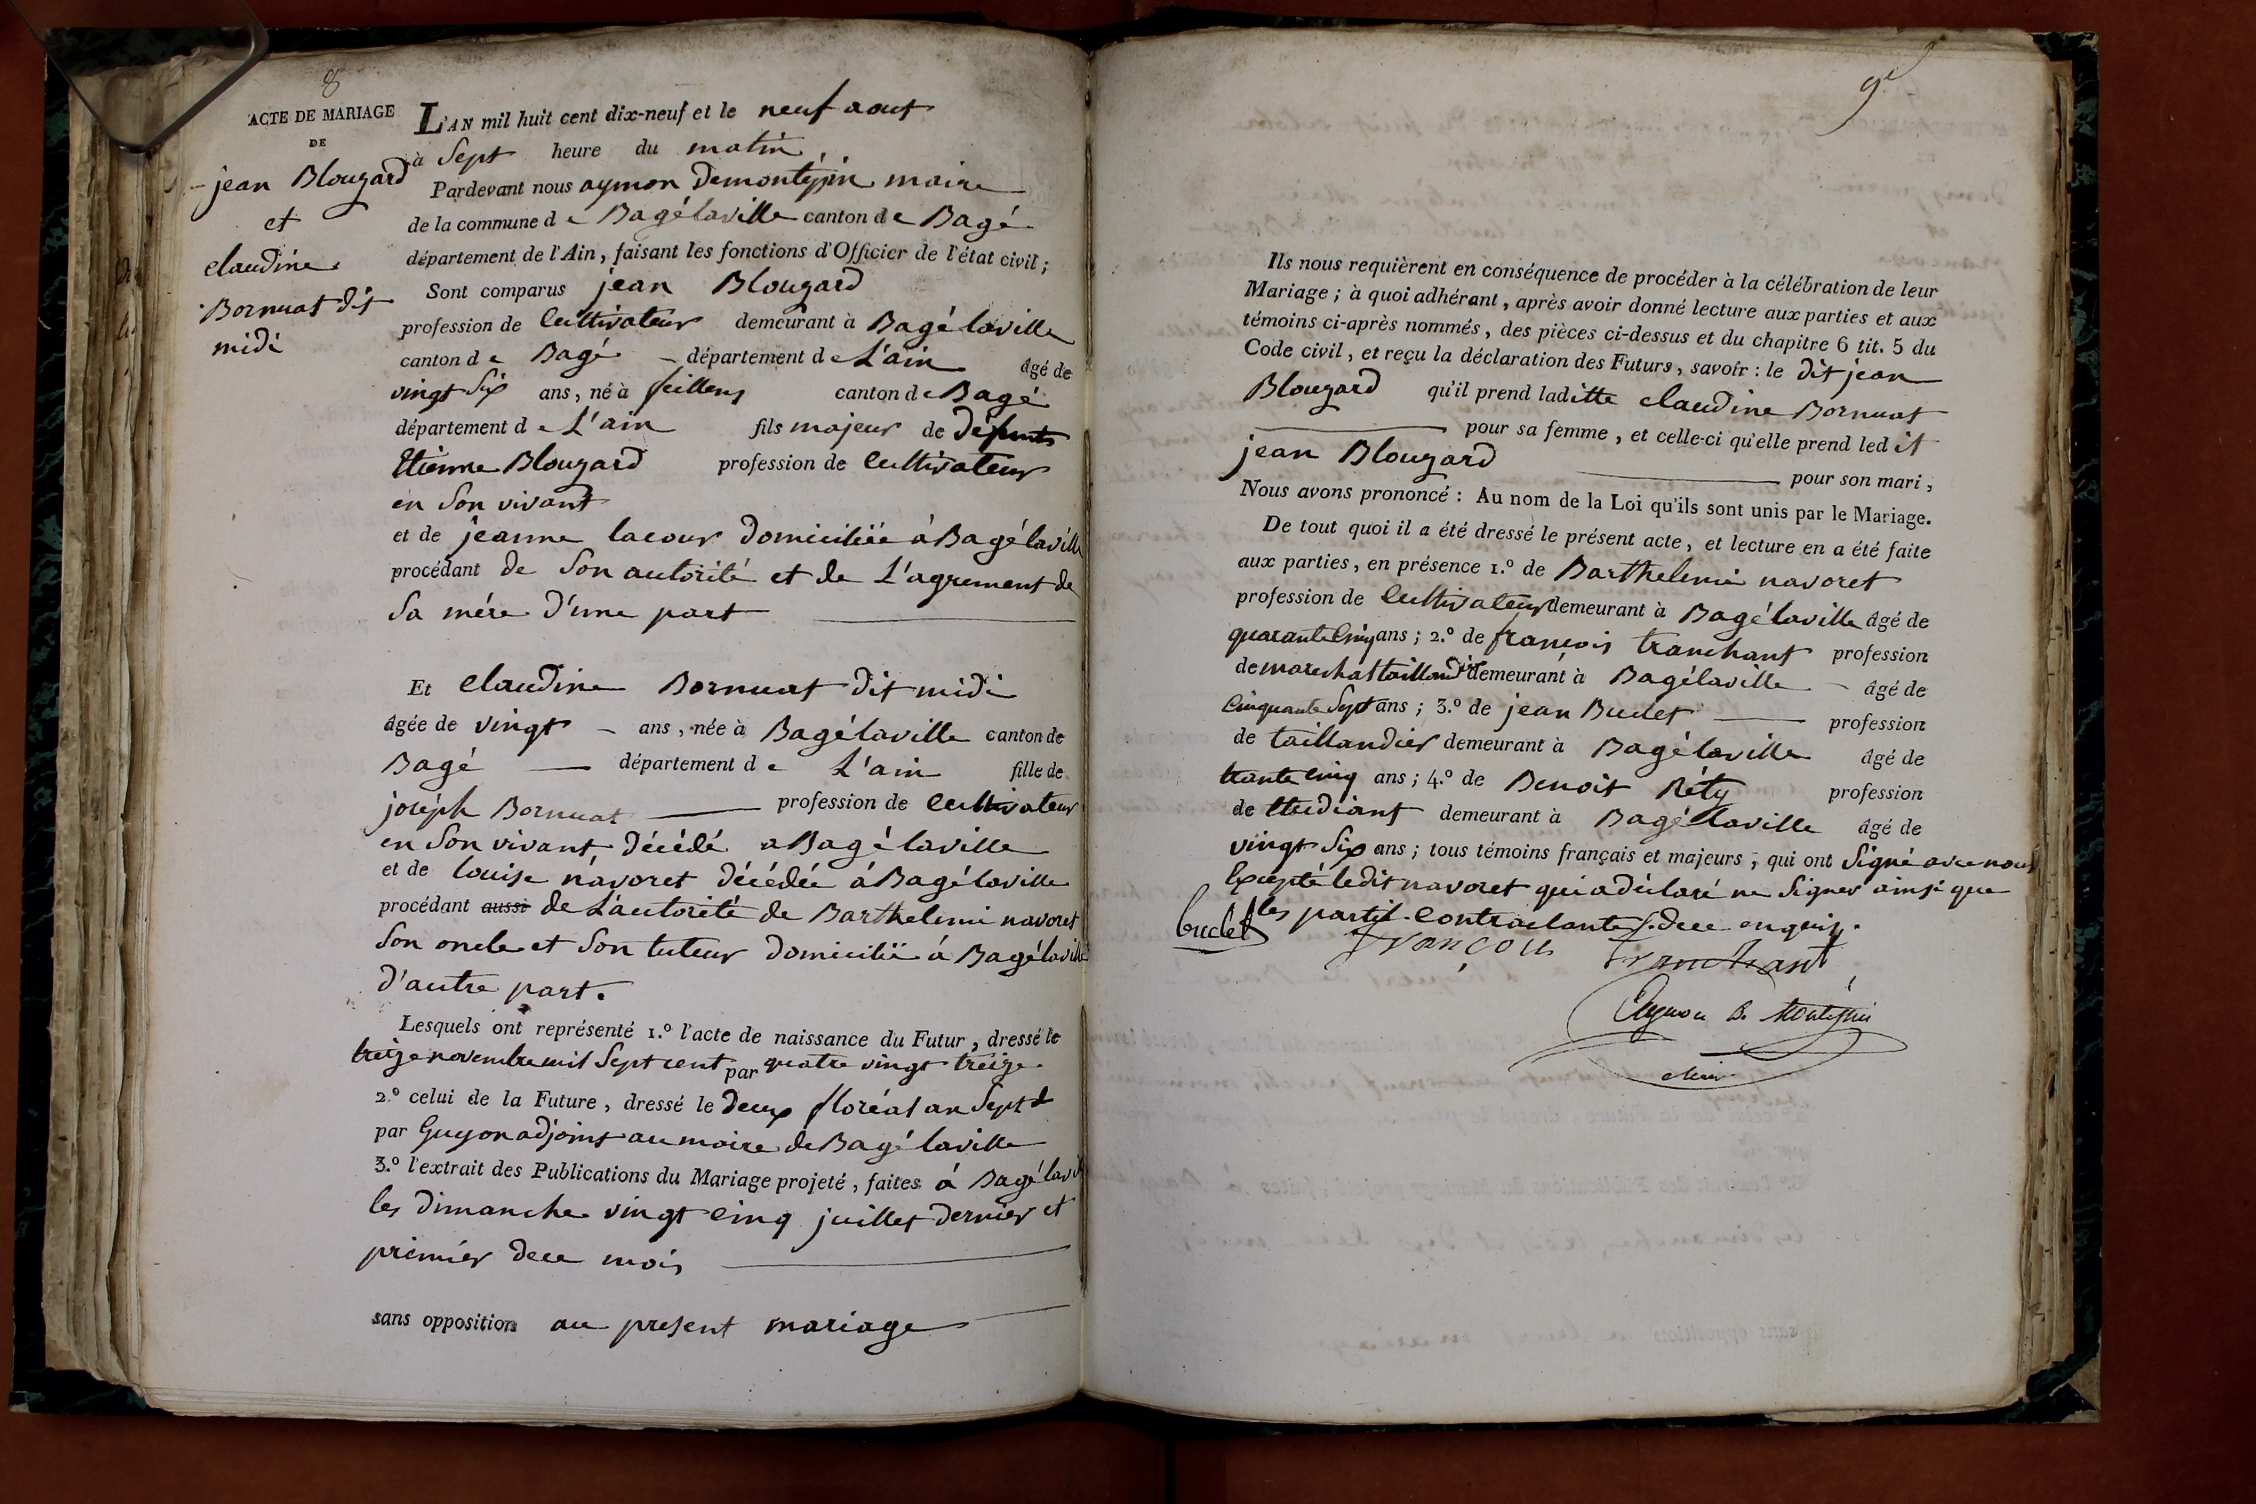 8
ACTE DE MARIAGE
DE
jean Blougard
et
claudine
Bornuat dit
midi
L'AN mil huit cent dix-neuf et le neuf aout
à Sept heure du matin
Pardevant nous aymon Demontépin maire
de la commune de Bagélaville canton de Bagé
département de l'Ain, faisant les fonctions d'Officier de l'état civil;
Sont comparus jean Blougard
profession de Cultivateur demeurant à Bagélaville
canton de Bagé département de L'ain âgé de
vingt Six ans, né à feillens canton de Bagé
département de L'ain fils majeur de défunts
Etienne Blougard profession de Cultivateur
en Son vivant
et de jeanne lacour Domiciliée á Bagélaville
procédant de Son autorité et de L'agrement de
Sa mére D'une part
Et claudine Bornuat dit midi
âgée de vingt ans, née à Bagélaville canton de
Bagé département de L'ain fille de
joséph Bornuat profession de Cultivateur
en Son vivant Décédé a Bagélaville
et de louise navoret Décédée á Bagélaville
procédant aussi de L'autorité de Barthelemi navoret
Son oncle et Son tuteur Domicilié á Bagélaville
D'autre part.
Lesquels ont représenté 1.º l'acte de naissance du Futur, dressé le
treize novembre mil Sept cent par quatre vingt treize
2.º celui de la Future, dressé le Deux floréal an Sept
par Guyon adjoint au maire de Bagélaville
3.º l'extrait des Publications du Mariage projeté, faites á Bagélavil
les Dimanche vingt cinq juillet Dernier et
premier dece mois
sans opposition au present mariage
9
Ils nous requièrent en conséquence de procéder à la célébration de leur
Mariage; à quoi adhérant, après avoir donné lecture aux parties et aux
témoins ci-après nommés, des pièces ci-dessus et du chapitre 6 tit. 5 du
Code civil, et reçu la déclaration des Futurs, savoir: le dit jean
Blougard qu'il prend laditte claudine Bornuat
pour sa femme, et celle-ci qu'elle prend led it
jean Blougard pour son mari,
Nous avons prononcé: Au nom de la Loi qu'ils sont unis par le Mariage.
De tout quoi il a été dressé le présent acte, et lecture en a été faite
aux parties, en présence 1.º de Barthelemi navoret
profession de Cultivateur demeurant à Bagélaville âgé de
quarante Cinq ans; 2.º de françois tranchant profession
de marechal taillandier demeurant à Bagélaville âgé de
Cinquante Sept ans; 3.º de jean Buclet profession
de taillandier demeurant à Bagélaville âgé de
trante cinq ans; 4.º de Benoit Réty profession
de Etudiant demeurant à Bagélaville âgé de
vingt Six ans; tous témoins français et majeurs, qui ont Signé avec nous
Excepté ledit navoret qui a déclaré ne Signer ainsi que
les parties contractantes dece enquis.
buclet
François Tranchant
Aymon D. Montépin